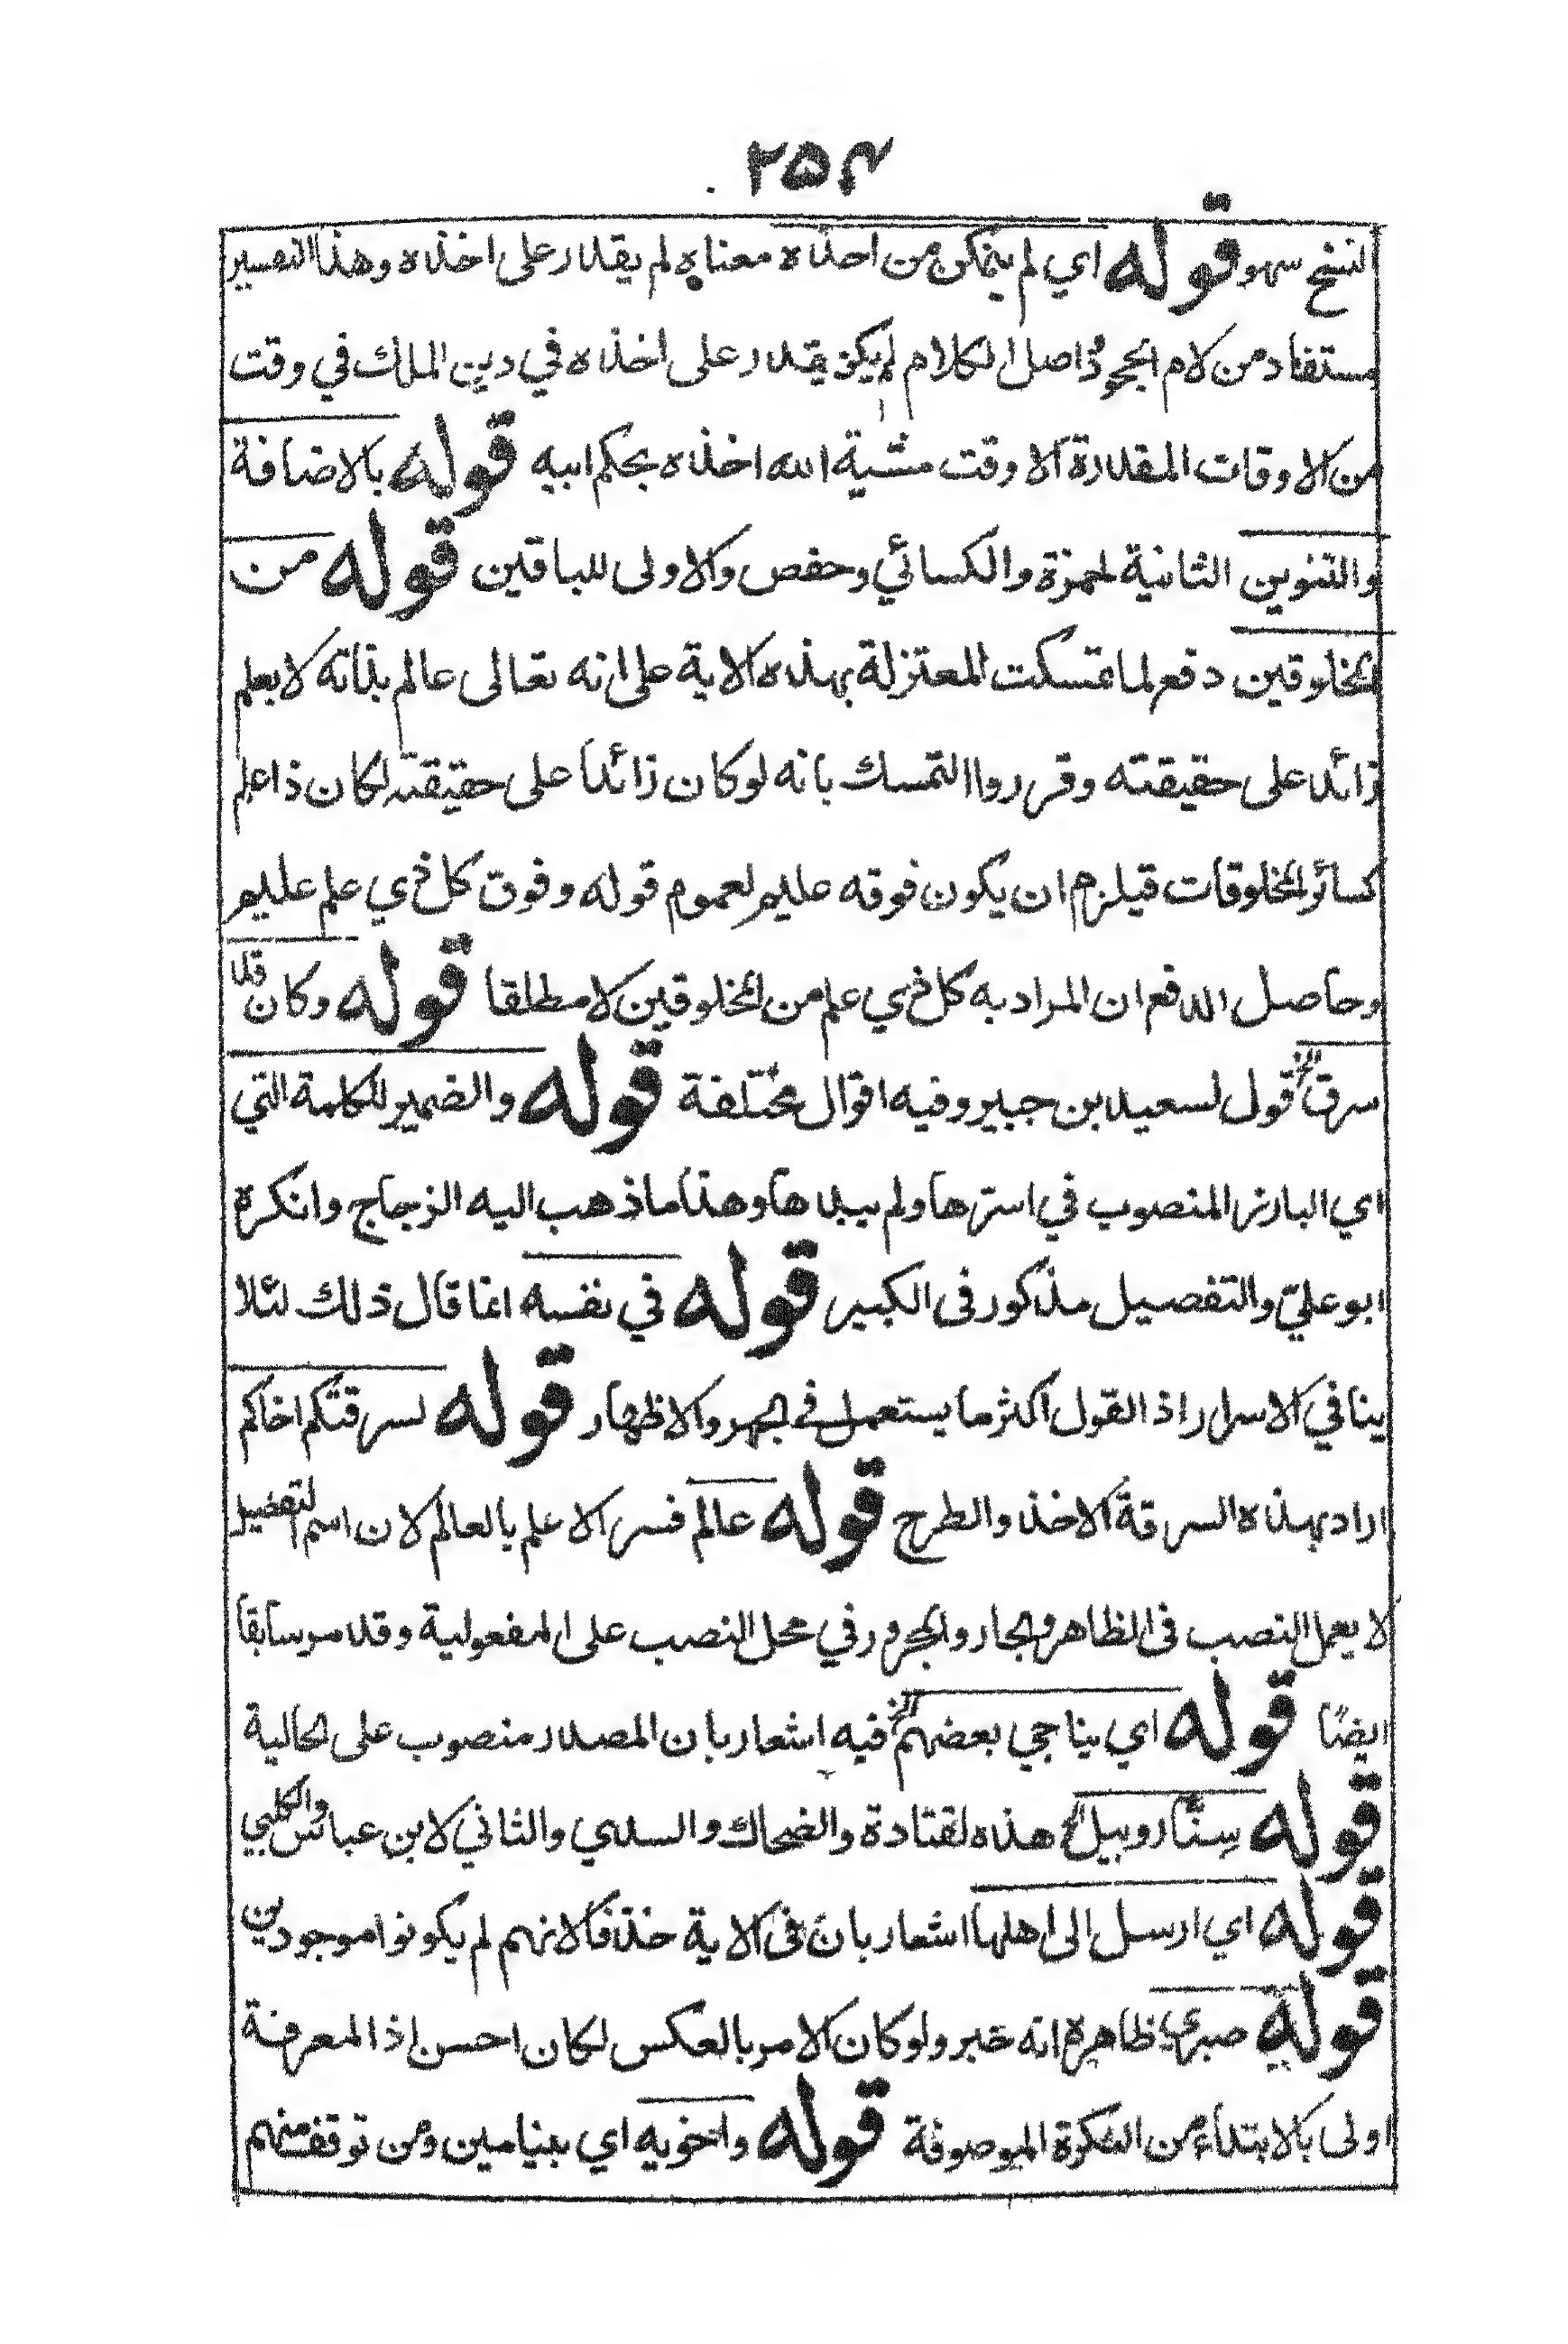 ٢٥٤
النسخ سهو قوله اي لم يتمكن من اخذه معناه لم يقدر على اخذه وهذا التفسير
مستفاد من لام الجحود اصل الكلام لم يكن يقدر على اخذه في دين الملك في وقت
من الاوقات المقدرة الا وقت مشية الله اخذه بحكم ابيه قوله بالاضافة
والتنوين الثانية لحمزة والكسائي وحفص والاولى للباقين قوله من
المخلوقين دفع لما تمسكت المعتزلة بهذه الاية على انه تعالى عالم بذاته لا بعلم
زائد على حقيقته وقرروا التمسك بانه لو كان زائدا على حقيقته لكان ذا علم
كسائر المخلوقات فيلزم ان يكون فوقه عليم لعموم قوله وفوق كل ذي علم عليم
وحاصل الدفع ان المراد به كل ذي علم من المخلوقين لا مطلقا قوله وكان
سرق الخ قول لسعيد بن جبير وفيه اقوال مختلفة قوله والضمير للكلمة التي
اي البارز المنصوب في اسرها ولم يبدها وهذا ما ذهب اليه الزجاج وانكره
ابو علي والتفصيل مذكور فى الكبير قوله في نفسه انما قال ذلك لئلا
ينافي الاسرار اذ القول اكثر ما يستعمل في الجهر والاظهار قوله لسرقتكم اخاكم
اراد بهذه السرقة الاخذ والطرح قوله عالم فسر الاعلم بالعالم لان اسم التفضيل
لا يعمل النصب فى الظاهر والجار والمجرور في محل النصب على المفعولية وقد مر سابقا
ايضًا قوله اي يناجي بعضهم الخ فيه اشعار بان المصدر منصوب على الحالية
قوله سنًّا روبيل الخ هذه لقتادة والضحاك والسدي والثاني لابن عباس والكلبي
قوله اي ارسل الى اهلها اشعار بان فى الاية حذفا لانهم لم يكونوا موجودين
قوله صبري ظاهره انه خبر ولو كان الامر بالعكس لكان احسن اذ المعرفة
اولى بالابتداء من النكرة الموصوفة قوله واخويه اي بنيامين ومن توقف منهم